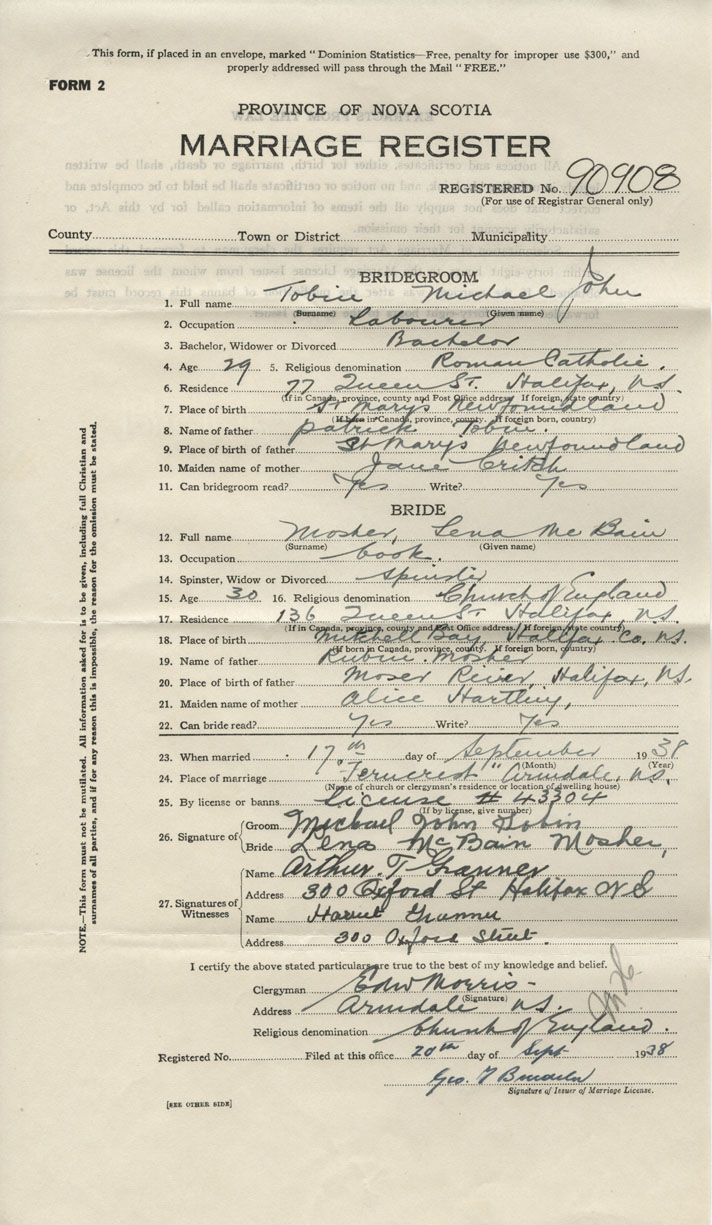 This form, if placed in an envelope, marked "Dominion Statistics—Free, penalty for improper use $300," and
properly addressed will pass through the Mail "FREE."
FORM 2
PROVINCE OF NOVA SCOTIA
MARRIAGE REGISTER
REGISTERED No. 90908
(For use of Registrar General only)
County Town or District Municipality
BRIDEGROOM
1. Full name Tobin Michael John
(Surname) (Given name)
2. Occupation Labourer
3. Bachelor, Widower or Divorced Bachelor
4. Age 29 5. Religious denomination Roman Catholic.
6. Residence 77 Queen St. Halifax, N.S.
(If in Canada, province, county and Post Office address. If foreign, state country)
7. Place of birth St Marys Newfoundland
(If born in Canada, province, county. If foreign born, country)
8. Name of father Patrick Tobin.
9. Place of birth of father St Marys Newfoundland
10. Maiden name of mother Jane Critch
11. Can bridegroom read? Yes Write? Yes
BRIDE
12. Full name Mosher, Lena McBain
(Surname) (Given name)
13. Occupation Cook.
14. Spinster, Widow or Divorced Spinster
15. Age 30 16. Religious denomination Church of England
17. Residence 136 Queen St. Halifax, N.S.
(If in Canada, province, county and Post Office address. If foreign, state country)
18. Place of birth Mitchell Bay, Halifax Co. N.S.
(If born in Canada, province, county. If foreign born, country)
19. Name of father Mosher
20. Place of birth of father Moser River, Halifax, N.S.
21. Maiden name of mother Alice Hartling,
22. Can bride read? Yes Write? Yes
23. When married 17th day of September 1938
(Month) (Year)
24. Place of marriage "Ferncrest" Armdale, N.S.
(Name of church or clergyman's residence or location of dwelling house)
25. By license or banns License # 43304
(If by license, give number)
26. Signature of Groom Michael John Tobin
Bride Lena McBain Mosher,
27. Signatures of Witnesses Name Arthur. T
Address 300 Oxford St Halifax N S
Name
Address 300 Oxford Street.
I certify the above stated particulars are true to the best of my knowledge and belief.
Clergyman Edw Morris
(Signature)
Address Armdale N.S.
Religious denomination Church of England.
Registered No. Filed at this office 20th day of Sept 1938
Geo. T
Signature of Issuer of Marriage License.
[SEE OTHER SIDE]
NOTE.—This form must not be mutilated. All information asked for is to be given, including full Christian and
surnames of all parties, and if for any reason this is impossible, the reason for the omission must be stated.